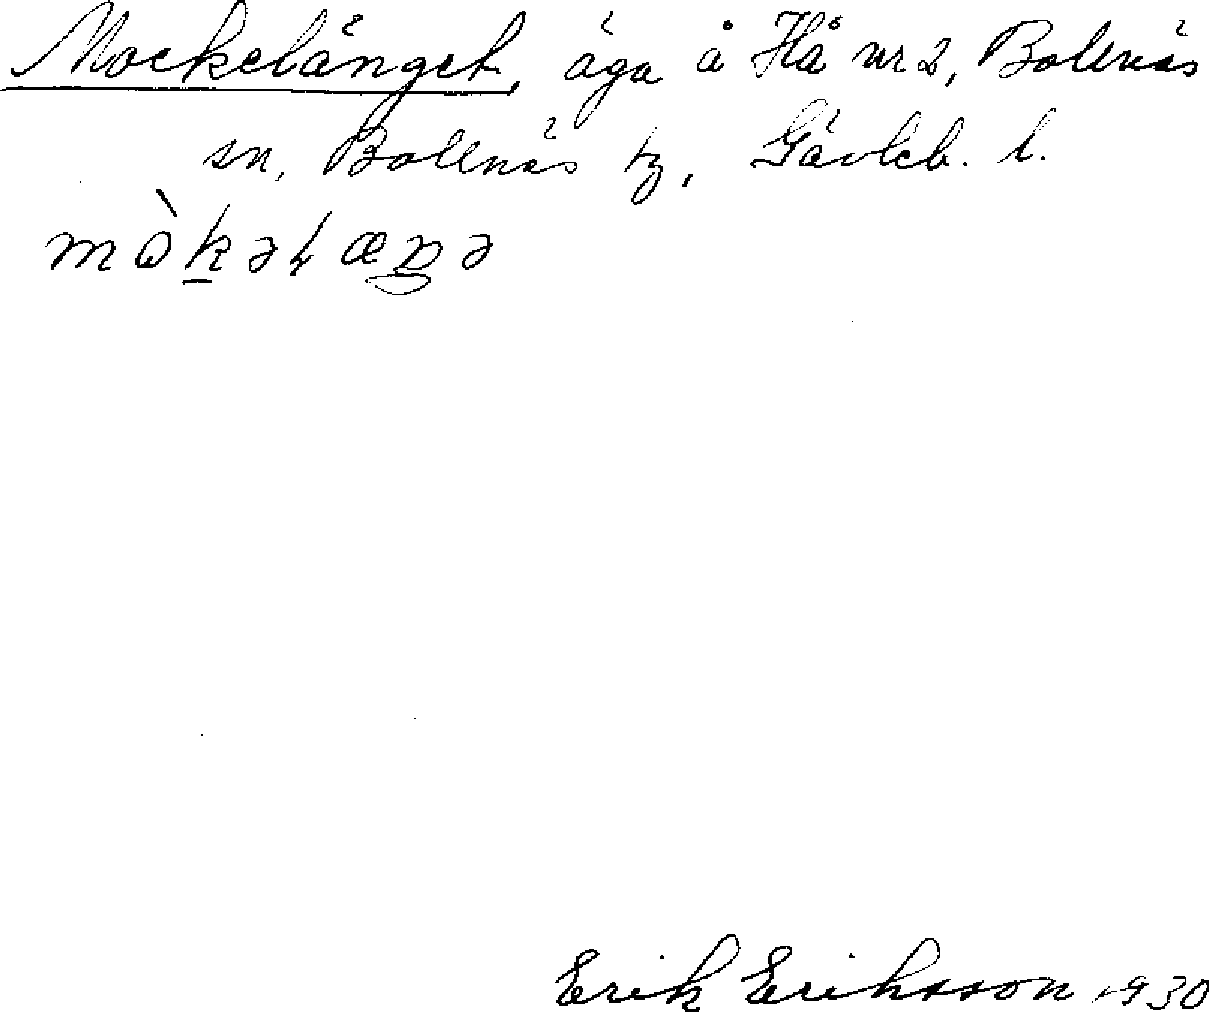 Mockelänget, äga å Hå nr 2, Bollnäs
sn, Bollnäs tg, Gävleb. l.
Erik Eriksson 1930